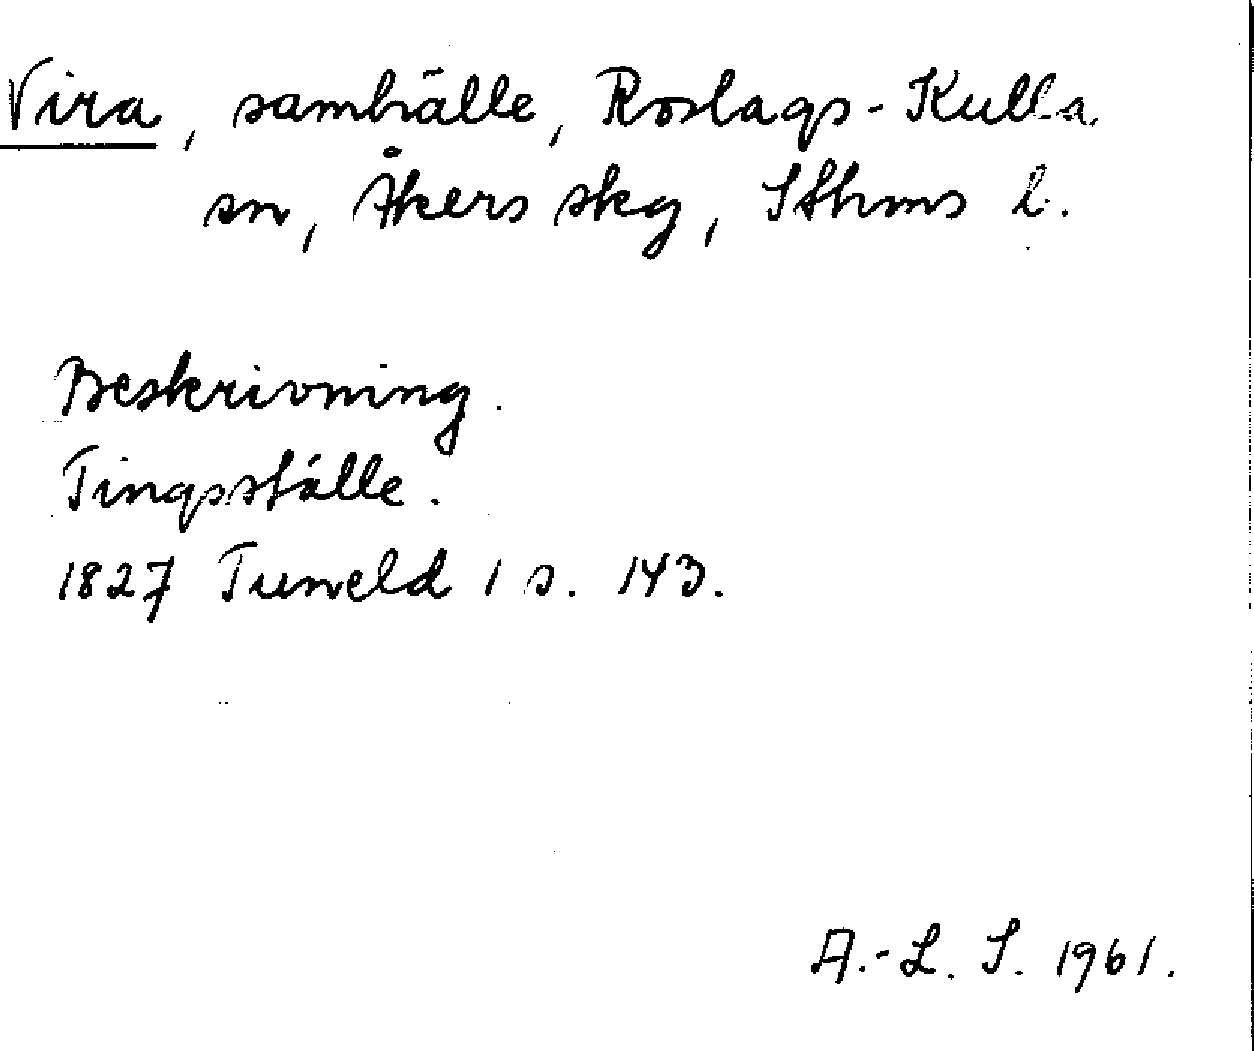 Vira, samhälle, Roslags-Kulla
sn, Åkers skg, Sthms l.
Beskrivning.
Tingsställe.
1827 Tuneld 1 s. 143.
A.-L. S. 1961.